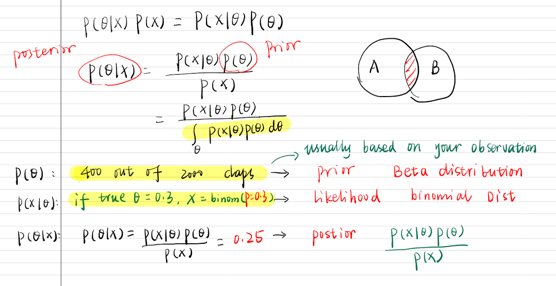 P(θ|X) P(X) = P(X|θ)P(θ)
posterior
P(θ|X) = P(X|θ)P(θ) / P(X)
prior
= P(X|θ)P(θ) / ∫θ P(X|θ)P(θ) dθ
A B
usually based on your observation
P(θ): 400 out of 2000 claps → prior Beta distribution
P(X|θ): if true θ = 0.3, X = binom(p=0.3) → Likelihood binomial Dist
P(θ|X): P(θ|X) = P(X|θ)P(θ) / P(X) = 0.25 → postior P(X|θ)P(θ) / P(X)